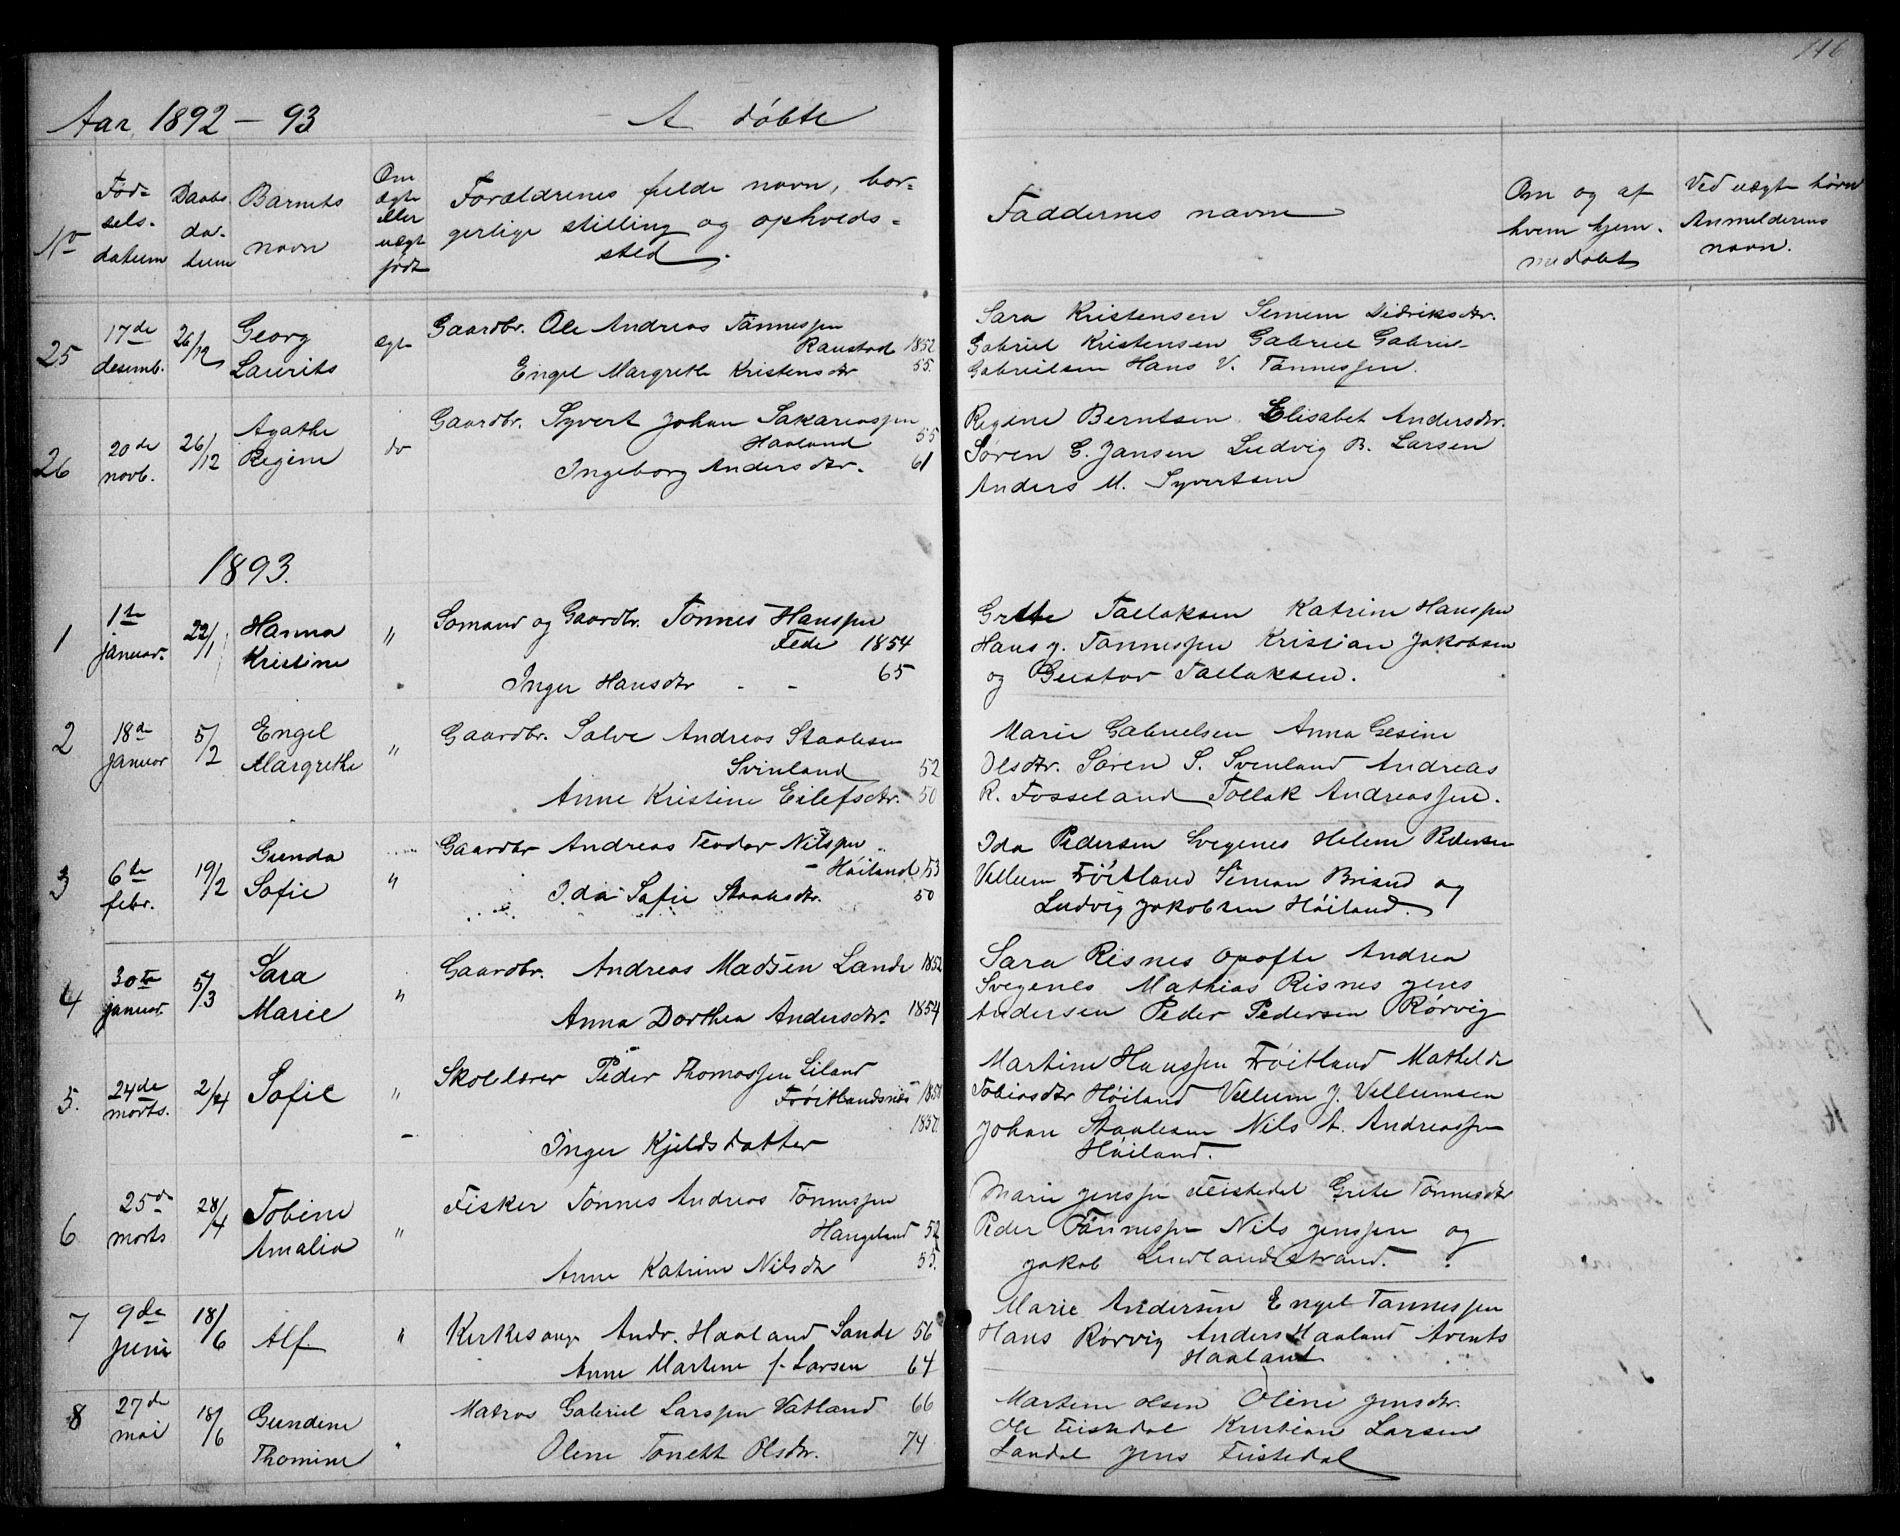 116
Aar 1892 - 93
A døbte
No
Fød-
sels-
datum
Daabs
da-
tum
Barnets
navn
Om
ægte
eller
uægt
født
Forældrenes fulde navn, bor-
gerlige stilling og opholds-
sted.
Faddernes navne
Om og af
hvem hjem-
medøbt
Ved uægte børn
Anmelderens
navn.
25
17de
desemb.
26/12
Georg
Laurits
ægte
Gaardbr. Ole Andreas Tønnessen
Raustad 1852
Engel Margrethe Kristensdtr 55.
Sara Kristensen Didriksdtr.
Gabriel Kristensen Gabriel Gabriel-
Gabrielsen Hans V. Tønnessen.
26
20de
novb.
26/12
Agathe
Regine
do
Gaardbr. Syvert Johan Sakareassen
Haaland 55
Ingeborg Andersdtr. 61
Regine Berntsen Elisabet Andersdtr.
Søren G. Jansen Ludvig B. Larsen
Anders M. Syvertsen
1893.
1
1te
januar.
22/1
Hanna
Kristine
"
Sømand og Gaardbr. Tønnes Hanssen
Fede 1854
Inger Hansdtr - - 65
Grethe Tallaksen Katrine Hanssen
Hans J. Tønnessen Kristian Jakobsen
og Gustav Tallaksen.
2
18de
januar
5/2
Engel
Margrethe
"
Gaardbr. Salve Andreas Staalesen
Svinland 52
Anne Kristine Eilefsdtr. 50
Marie Gabrielsen Anna Gesine
Olsdtr. Søren S. Svenland Andreas
R. Fosseland Tollak Andreassen.
3
6te
febr.
19/2
Gunda
Sofie
"
Gaardbr Andreas Teodor Nilssen
- Høiland 53
Ida Sofie Staalesdtr. 50
Ida Pedersen Svegenes Helene Pedersen
Vellum Frøitland Simon Brisud og
Ludvig Jakobsen Høiland.
4
30te
januar.
5/3
Sara
Marie
"
Gaardbr. Andreas Madsen Lande 1852
Anna Dorthea Andersdtr. 1854
Sara Risnes Opofte Andrea
Svegenes Mathias Risnes Jens
Andersen Peder Pedersen Rørvig
5.
24de
marts.
2/4
Sofie
"
Skolelærer Peder Thomassen Eiland
Frøitlandsnes
Inger Kjeldsdatter
Martine Hanssen Frøitland Mathilde
Tobiasdtr Høiland Vellum J. Vellumsen
Johan Staalesen Nils A. Andreassen
Høiland.
6
25de
marts
28/4
Tobine
Amalia
"
Fisker Tønnes Andreas Tønnessen
Haugeland 52
Anne Katrine Nilsdtr 55.
Marie Jenssen Feistedal Grete Tønnesdtr
Peder Tønnessen Nils Jenssen og
Jakob Lundlandsstrand.
7
9de
Juni
18/6
Alf
"
Kirkesanger Andr. Haaland Sande 56
Anne Martine f. Larsen 64
Marie Andersen Engel Tønnessen
Hans Rørvig Anders Haaland Avents
Haaland
8
27de
mai
18/6
Gundine
Thomine
"
Matros Gabriel Larssen Vatland 66
Olene Tonette Olsdtr. 74
Martine Olsen Oline Jensdtr.
Ole Feistedal Kristian Larsen
Landal Jens Feistedal